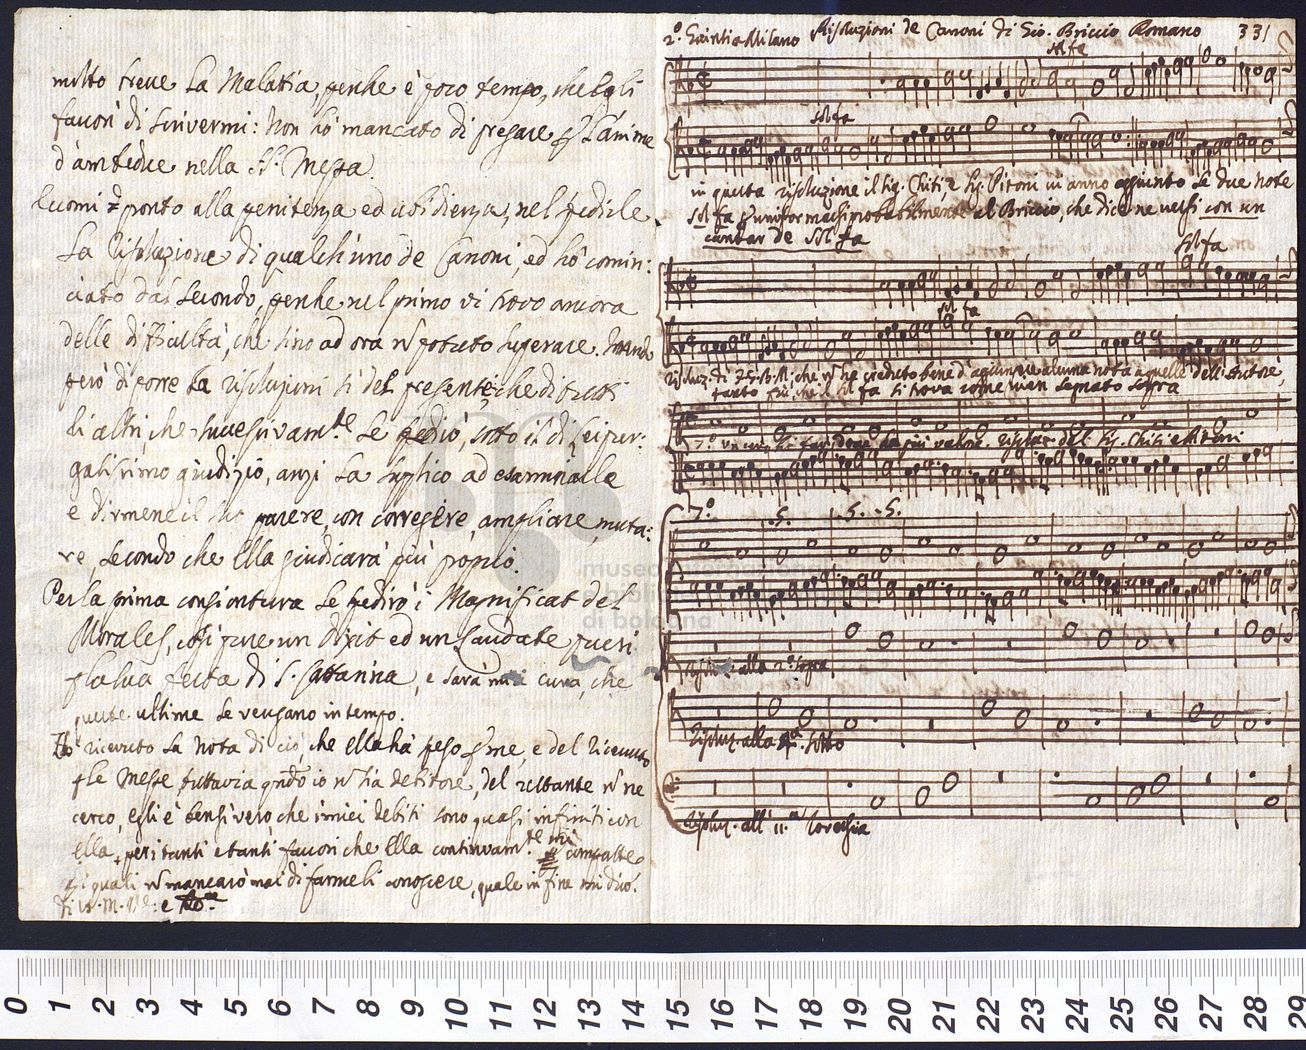 molto breve la Malatia, perche è poco tempo, che Egli
favorì di scrivermi: Non hò mancato di pregare p. l'anime
d'ambedue nella S. Messa.
Eccomi pronto alla penitenza ed ubidienza, nel spedirle
la Risoluzione di qualch'uno de Canoni, ed hò comin:
ciato dal secondo, perche nel primo vi trovo ancora
delle difficultà, che sino ad ora ñ potuto superare. Intendo
però di porre la risoluzioni sì del presente, che di tutti
li altri che successivam.te le spedirò, sotto il di Lei pur:
gatissimo giudizio, anzi la supplico ad esaminalle
e dirmene il suo parere, con corregere, ampliare, muta:
re, secondo che Ella giudicarà più proprio.
Per la prima congiontura le spedirò i Magnificat del
Morales, così pure un Dixit ed un Laudate pueri
p la sua festa di S. Cattarina, e sarà mia cura, che
queste ultime le vengano in tempo.
Hò ricevuto la nota di ciò, che Ella hà speso p me, e del ricevuto
p le Messe, tuttavia io ñ sia debitore, del restante ñ ne
cerco, egli è bensì vero che i miei debiti sono quasi infiniti con
ella, per i tanti e tanti favori che Ella continuam.te mi comparte
p i quali ñ mancarò mai di farmeli conoscere, quale in fine mi dirò.
Di V. M. R.
2.º Milano Risoluzioni de Canoni di Gio. Briccio Romano 331
sol fa
sol fa
in questa risoluzione il Sig. Chiti, e Sig. Pitoni vi anno aggiunto le due note
sol fa p uniformarsi probabilmente al Briccio, che dice ne versi con un
cantar de sol fa
sol fa
sol fa
Risoluz. di F. G. B. M. che ñ hà creduto bene d'aggiungere alcuna nota a quelle dell'Autore,
tanto più che il sol fa si trova come vien segnato sopra
7.º di più valore. risoluz. del Sig. Chiti e Pitoni
7.º .S. .S. .S.
Risoluz. alla 2.ª sopra
Risoluz. alla 4.ª sotto
Risoluz. all' 11.ª roversia
museo internazionale
e biblioteca
di bologna
0 1 2 3 4 5 6 7 8 9 10 11 12 13 14 15 16 17 18 19 20 21 22 23 24 25 26 27 28 29